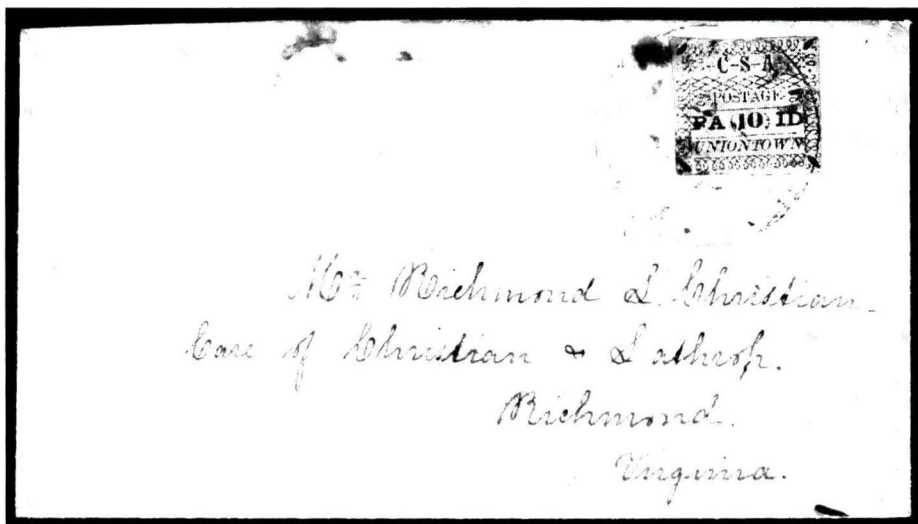 C-S-A
POSTAGE
PA 10 ID
UNIONTOWN
Mr Richmond L. Christian.
Care of Christian & Lathrop.
Richmond.
Virginia.